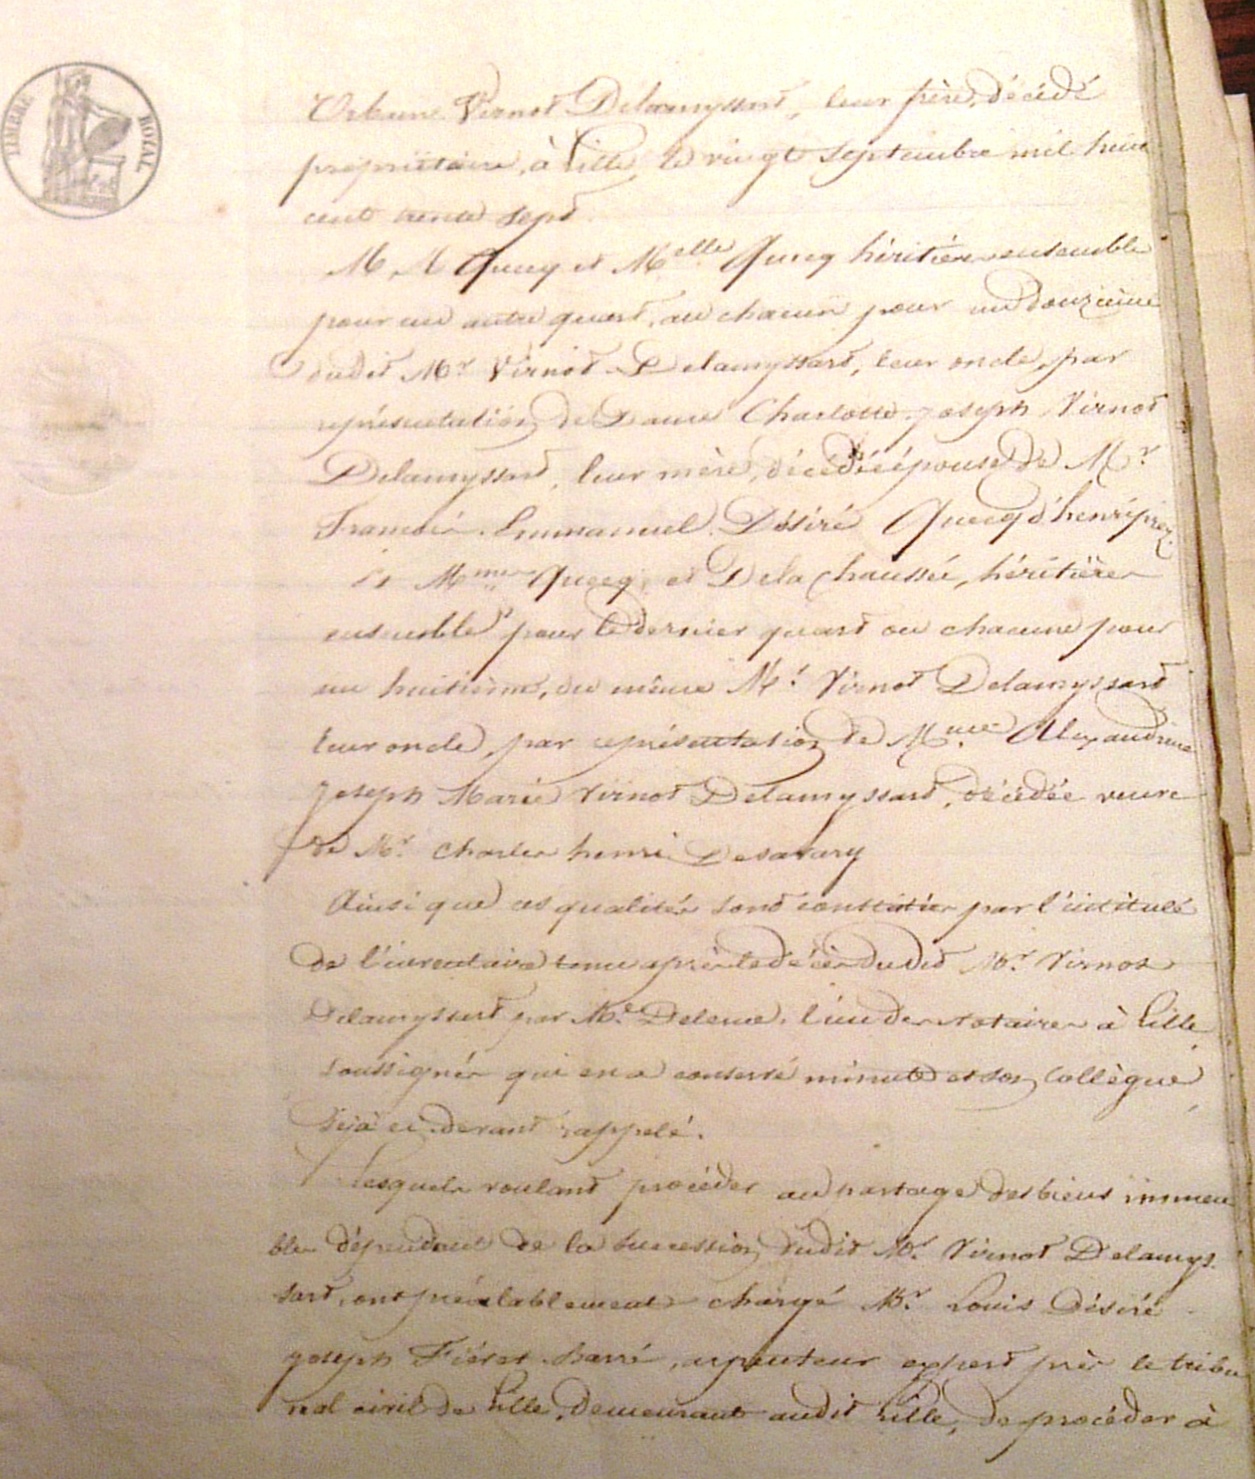 TIMBRE ROYAL
Urbain Virnot Delamyssart, leur frère, décédé
propriétaire, à Lille, le vingt septembre mil huit
cent trente sept.
M. M. Quecq et Melle Quecq héritiers ensemble
pour un autre quart, ou chacun pour un douzième
dudit Mr Virnot Delamyssart, leur oncle, par
représentation de Dame Charlotte Joseph Virnot
Delamyssart, leur mère, décédée épouse de Mr
François Emmanuel Désiré Quecq d'henripret.
Et Mmes Quecq et Delachaussée, héritières
ensemble pour le dernier quart ou chacune pour
un huitième, du même Mr Virnot Delamyssart
leur oncle, par représentation de Mme Alexandrine
Joseph Marie Virnot Delamyssart, décédée veuve
de Mr Charles henri Desavary
Ainsi que ces qualités sont constatées par l'intitulé
de l'inventaire tenu après le décès dudit Mr Virnot
Delamyssart par Me Deleruë, l'un des notaires à Lille
soussignés qui en a conservé minute et son collègue
déjà ci-devant rappelé.
Lesquels voulant procéder au partage des biens immeu
bles dépendant de la succession dudit Mr Virnot Delamys
sart, ont préalablement chargé Mr Louis Désiré
Joseph Fiéret Barré, arpenteur expert près le tribu
nal civil de Lille, demeurant audit Lille, de procéder à